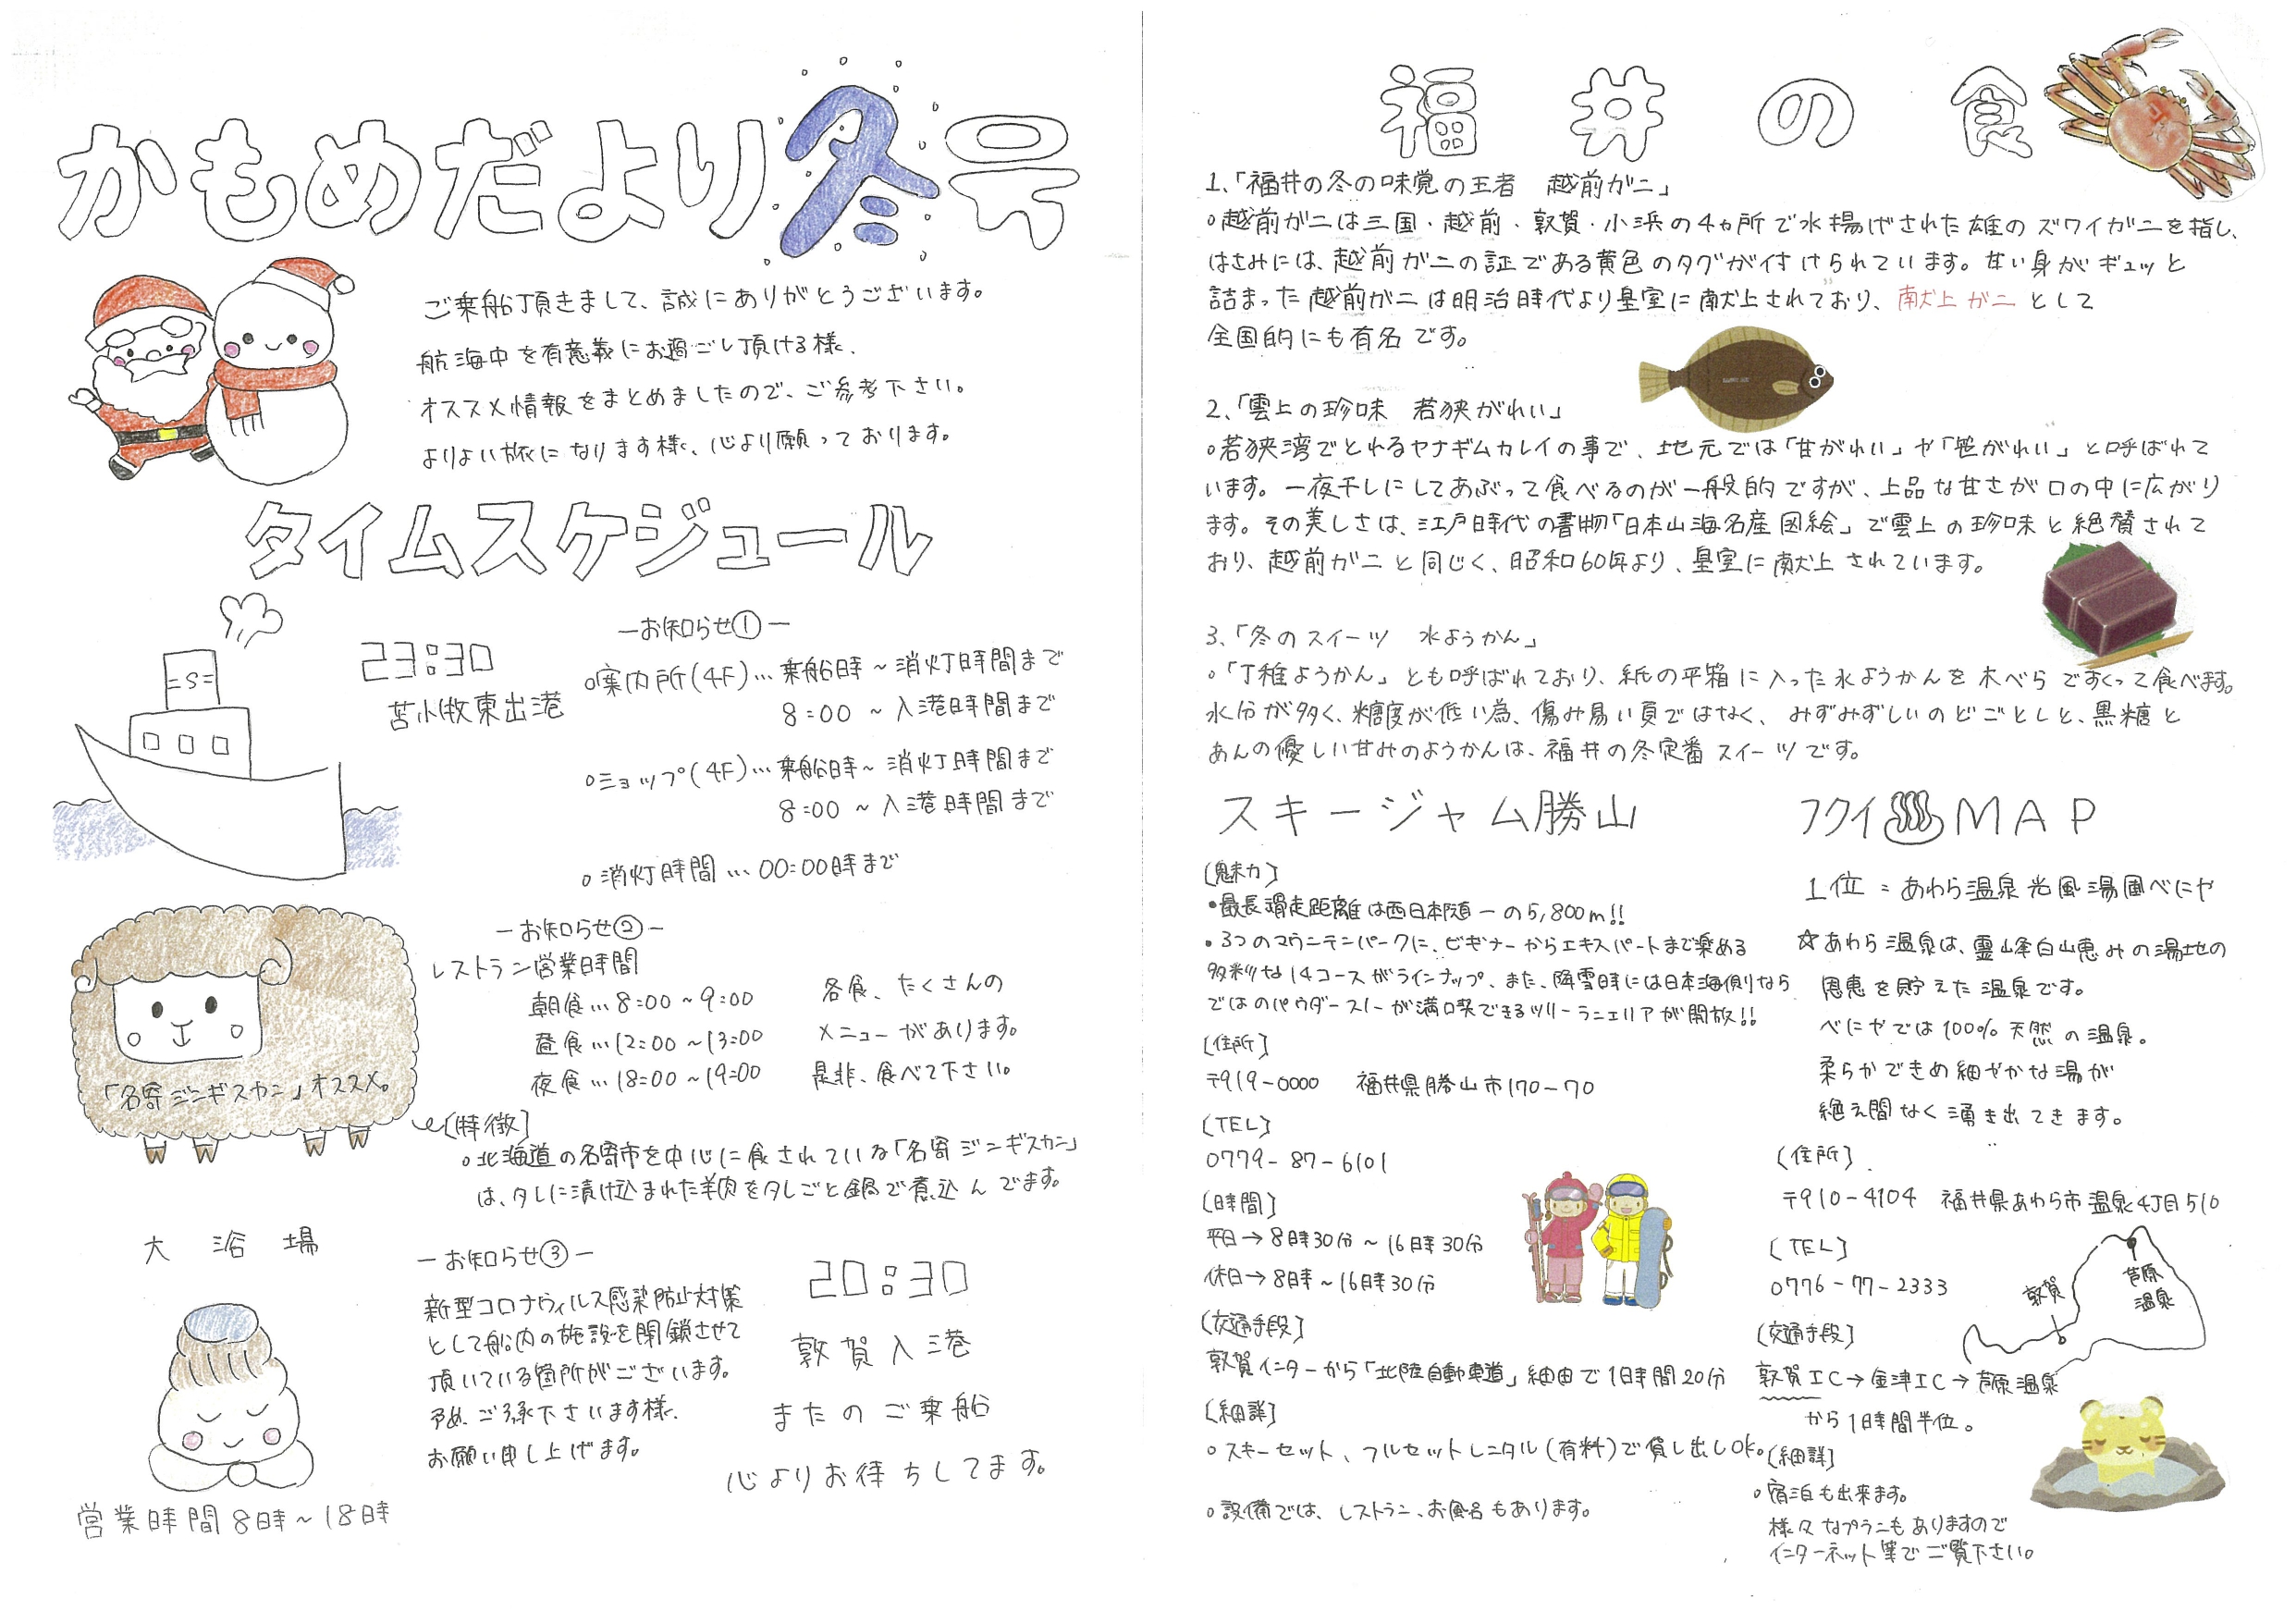 かもめだより冬号
ご乗船頂きまして、誠にありがとうございます。
航海中を有意義にお過ごし頂ける様、
オススメ情報をまとめましたので、ご参考下さい。
よりよい旅になります様、心より願っております。
タイムスケジュール
=S=
23:30
苫小牧東出港
ーお知らせ①ー
○案内所(4F)…乗船時~消灯時間まで
8:00 ~入港時間まで
○ショップ(4F)…乗船時~消灯時間まで
8:00 ~入港時間まで
○消灯時間…00:00時まで
ーお知らせ②ー
レストラン営業時間
朝食…8:00~9:00
昼食…12:00~13:00
夜食…18:00~19:00
各食、たくさんの
メニューがあります。
是非、食べて下さい。
「名寄ジンギスカン」オススメ。
〔特徴〕
○北海道の名寄市を中心に食されている「名寄ジンギスカン」
は、タレに漬け込まれた羊肉をタレごと鍋で煮込んでます。
大浴場
営業時間8時~18時
ーお知らせ③ー
新型コロナウィルス感染防止対策
として船内の施設を閉鎖させて
頂いている箇所がございます。
予め、ご了承下さいます様、
お願い申し上げます。
20:30
敦賀入港
またのご乗船
心よりお待ちしてます。
福井の食
1、「福井の冬の味覚の王者 越前がニ」
○越前がニは三国・越前・敦賀・小浜の4ヵ所で水揚げされた雄のズワイがニを指し、
はさみには、越前がニの証である黄色のタグが付けられています。甘い身がギュッと
詰まった越前がニは明治時代より皇室に献上されており、献上がニとして
全国的にも有名です。
2、「雲上の珍味 若狭がれい」
○若狭湾でとれるヤナギムカレイの事で、地元では「甘がれい」や「笹がれい」と呼ばれて
います。一夜干しにしてあぶって食べるのが一般的ですが、上品な甘さが口の中に広がり
ます。その美しさは、江戸時代の書物「日本山海名産図絵」で雲上の珍味と絶賛されて
おり、越前がニと同じく、昭和60年より、皇室に献上されています。
3、「冬のスイーツ 水ようかん」
○「丁稚ようかん」とも呼ばれており、紙の平箱に入った水ようかんを木べらですくって食べます。
水分が多く、糖度が低い為、傷み易い頁ではなく、みずみずしいのどごとしと、黒糖と
あんの優しい甘みのようかんは、福井の冬定番スイーツです。
スキージャム勝山
〔魅力〕
・最長滑走距離は西日本随一の5,800m!!
・3つのマウンテンパークに、ビギナーからエキスパートまで楽める
多彩な14コースがラインナップ、また、降雪時には日本海側なら
ではのパウダースノーが満喫できるツリーランエリアが開放!!
〔住所〕
〒919-0000 福井県勝山市170-70
〔TEL〕
0779-87-6101
〔時間〕
平日→8時30分~16時30分
休日→8時~16時30分
〔交通手段〕
敦賀インターから「北陸自動車道」経由で1時間20分
〔細詳〕
○スキーセット、フルセットレンタル(有料)で貸し出しOK。
○設備では、レストラン、お風呂もあります。
フクイ♨MAP
1位=あわら温泉光風湯圃べにや
☆あわら温泉は、霊峰白山恵みの湯地の
恩恵を貯えた温泉です。
べにやでは100%天然の温泉。
柔らかできめ細やかな湯が
絶え間なく湧き出てきます。
〔住所〕
〒910-4104 福井県あわら市温泉4丁目510
〔TEL〕
0776-77-2333
芦原
温泉
敦賀
〔交通手段〕
敦賀IC→金津IC→芦原温泉
から1時間半位。
〔細詳〕
○宿泊も出来ます。
様々なプランもありますので
インターネット等でご覧下さい。